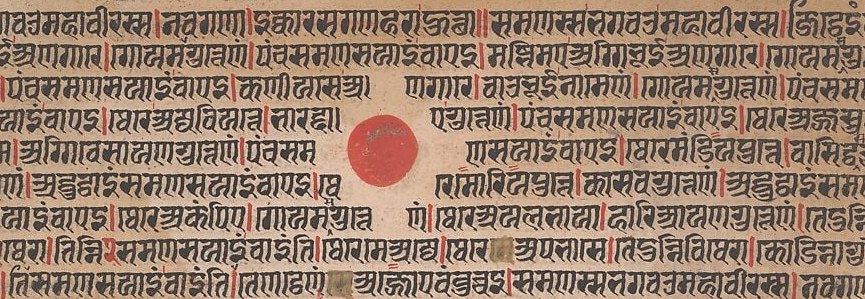 गवउमहावीरस्स।नवगणा।इक्कारसगणहराहुत्था॥समणस्सभगवउमहावीरस्स।जिट्ठेइं
ईअणगारे।गोयमेगुत्तेणं।पंचसमणसयाइंवाएइ।मज्झिमेअग्गिभूईअणगारे।गोयमेगु
।पंचसमणसयाइंवाएइ।कणीयसेअ णगारे।वाउभूईनामेणं।गोयमेगुत्तेणं।पंचसम
याइंवाएइ।थेरेअज्जवियत्ते।भारद्दा एगुत्तेणं।पंचसमणसयाइंवाएइ।थेरेअज्जसु
।अग्गिवेसायणेगुत्तेणं।पंचसम णसयाइंवाएइ।थेरेमंडियपुत्ते।वासिट्ठे
णं।अद्धुट्ठाइंसमणसयाइंवाएइ।थे रेमोरियपुत्ते।कासवेगुत्तेणं।अद्धुट्ठाइंसम
याइंवाएइ।थेरेअकंपिए।गोयमेगुत्ते णं।थेरेअयलभाया।हारिआयणेगुत्तेणं।तेदु
थेरा।तिन्नि२समणसयाइंवाइंति।थेरेमेअज्जे।थेरे अपभासे।एएदुन्निविथेरा।कोडिन्नागु
।तिसमणसयाइंवाइंति।तेणट्ठेणं अज्जोएवंवुच्चइ।समणस्सभगवउमहावीरस्स।नवगणा